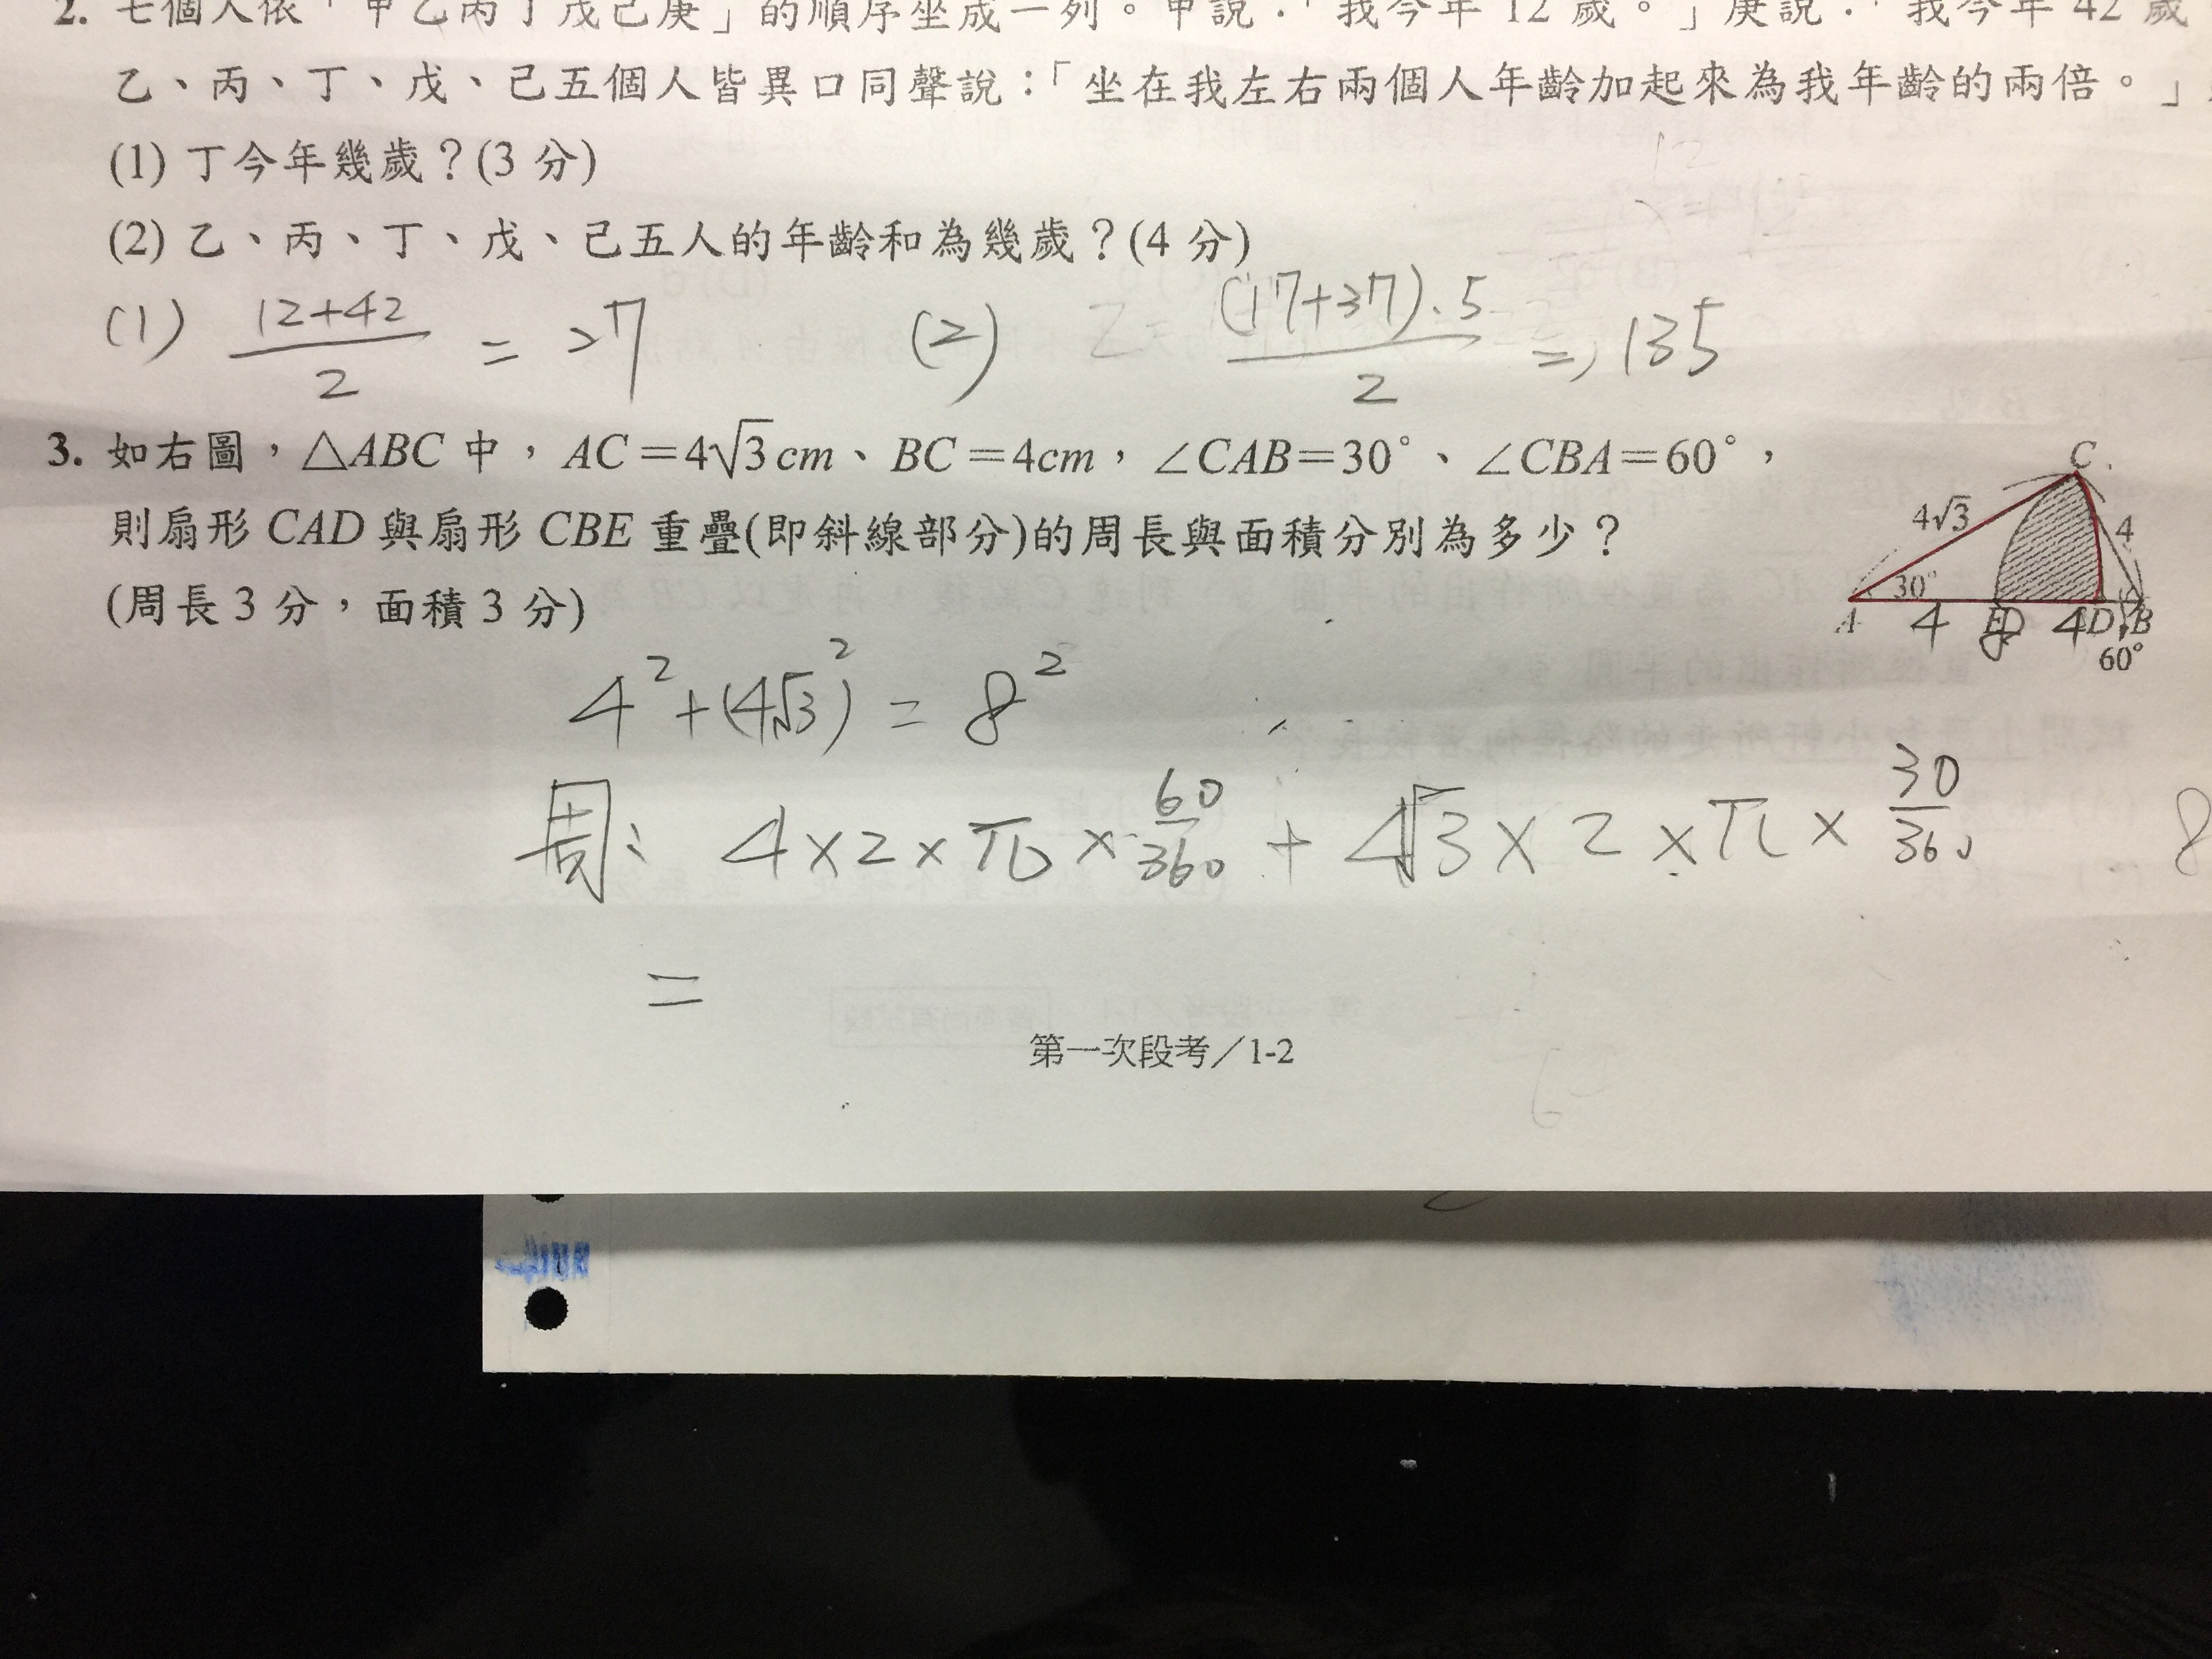 2. 七個人依「甲乙丙丁戊己庚」的順序坐成一列。甲說:「我今年 12 歲。」庚說:「我今年 42 歲
乙、丙、丁、戊、己五個人皆異口同聲說:「坐在我左右兩個人年齡加起來為我年齡的兩倍。」
(1) 丁今年幾歲?(3 分)
(2) 乙、丙、丁、戊、己五人的年齡和為幾歲?(4 分)
(1) (12+42)/2 = 27 (2) (17+37).5/2 = 135
3. 如右圖,△ABC 中,AC=4√3cm、BC=4cm,∠CAB=30°、∠CBA=60°,
則扇形 CAD 與扇形 CBE 重疊(即斜線部分)的周長與面積分別為多少?
(周長 3 分,面積 3 分)
C
4√3 4
30°
A D B
4 4
60°
4²+(4√3)²=8²
周: 4×2×π×60/360 + 4√3×2×π×30/360 8
=
第一次段考/1-2